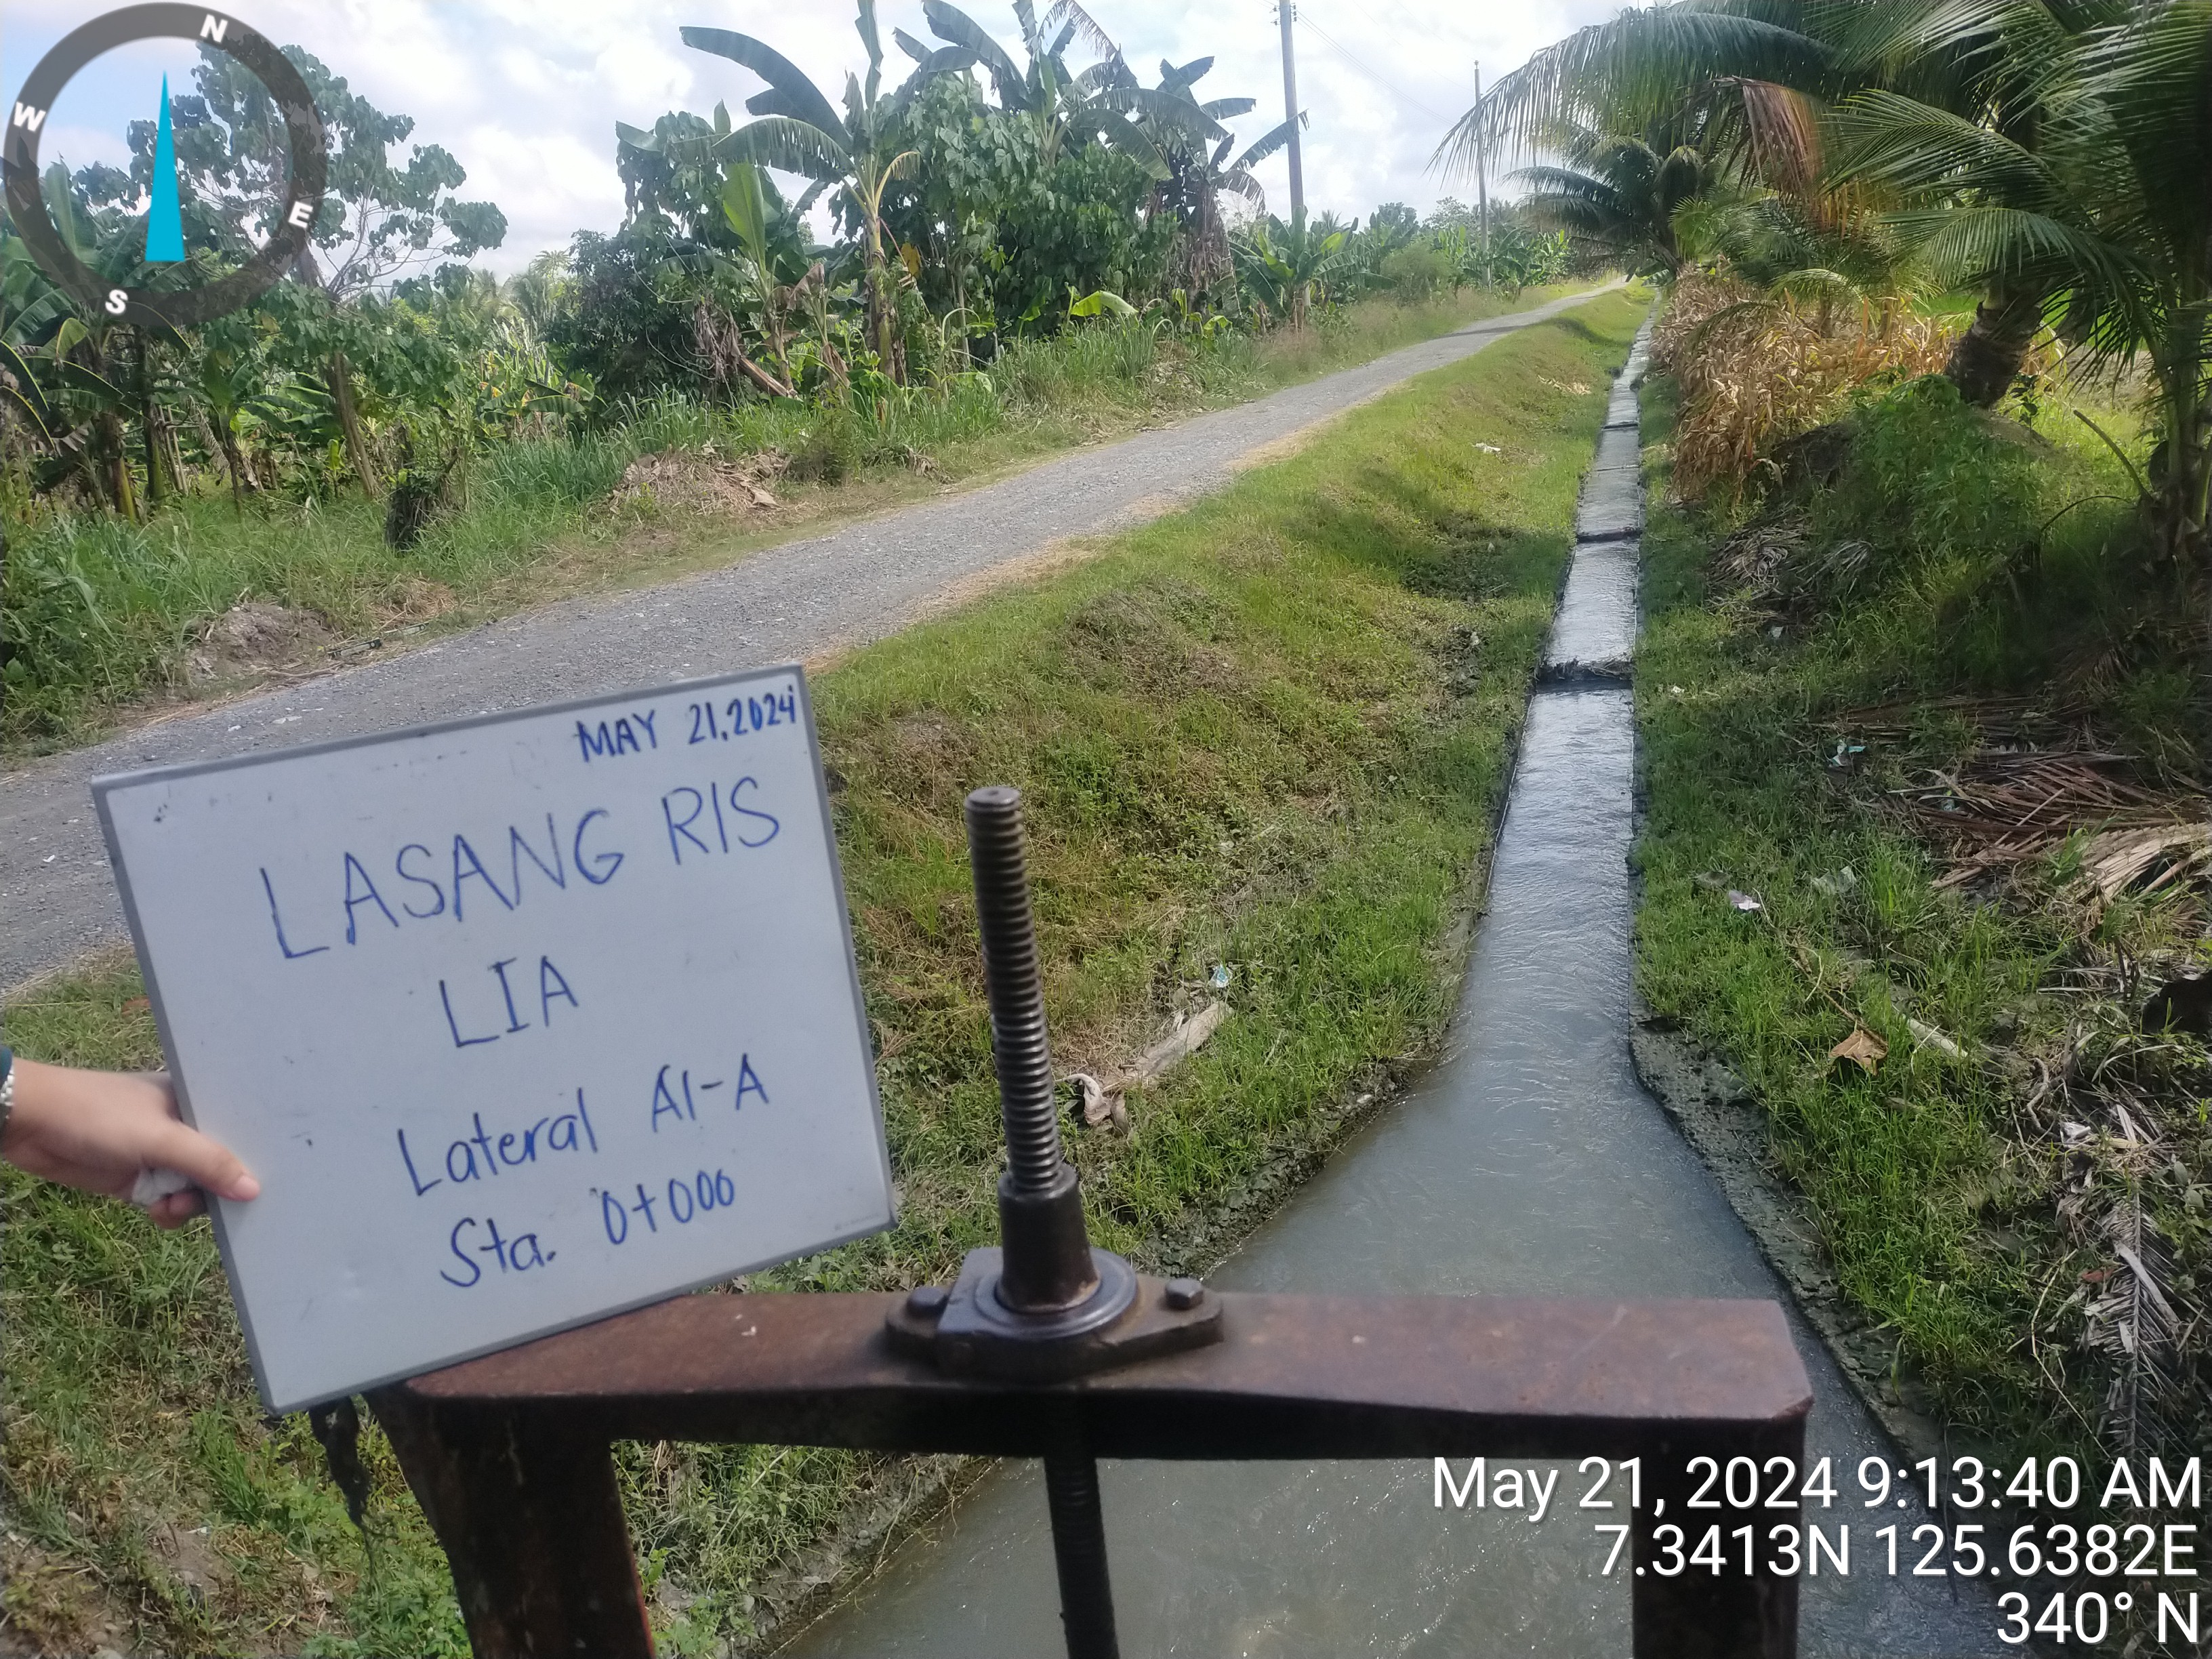 N
W
E
S
MAY 21, 2024
LASANG RIS
LIA
Lateral A1-A
Sta. 0+000
May 21, 2024 9:13:40 AM
7.3413N 125.6382E
340° N